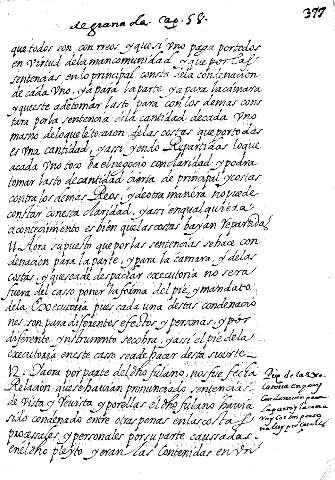 de granada Cap. 58.
377
que todos son con rreos, y que si vno paga por todos
en virtud de la mancomunidad y que por las
sentencias en lo principal consta de la condenacion
de cada vno, ya para la parte ya para la camara
y que este a de tomar lasto para con los demas cons
tara por la sentencia de la cantidad de cada vno
mas no de la que le tocaron de las costas que por todas
es vna cantidad, y assi yendo Repartidas lo que
a cada vno toco ha el negocio con claridad y podra
tomar lasto de cantidad cierta de principal y costas
contra los demas Reos, y de otra manera no puede
constar con esta claridad, y assi en qualquiera
acontecimento es bien que las costas bayan Repartidas
11. Aora supuesto que por las sentencias se hace con
denacion para la parte, y para la camara, y de las
costas, y que se a de despachar executoria no sera
fuera del caso poner la forma del pie, y mandato
de la Executoria pues cada vna destas condenacio
nes son para diferentes efectos y personas, y por
diferente ynstrumento se cobra, y assi el pie de la
executoria en este caso se a de hacer desta suerte.
12. Y aora por parte del dho fulano, nos fue fecha
Relacion que se hauian pronunciado sentencias
de vista y Reuista y por ellas el dho fulano hauia
sido condenado entre otras penas en las costas
procesales y personales por su parte caussadas
en el dho pleyto, y eran las contenidas en vn
Pie de la exe
cutoria en que ay
Condenacion para
la parte y la cama
ra y Costas